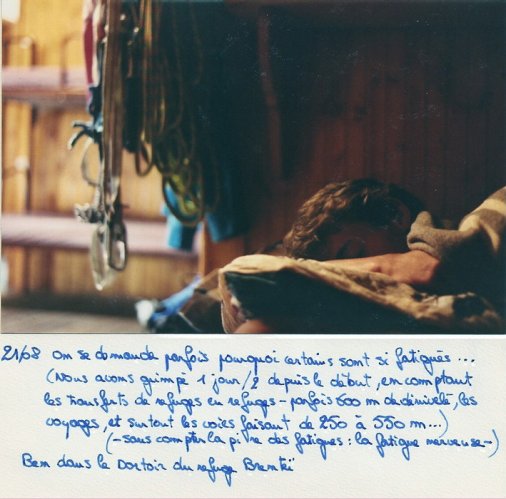 21/08 On se demande parfois pourquoi certains sont si fatigués ...
(Nous avons grimpé 1 jour/2 depuis le début, en comptant
les transferts de refuges en refuges - parfois 600 m de dénivelé, les
voyages, et surtout les voies faisant de 250 à 550 m...)
(- sans compter la pire des fatigues : la fatigue nerveuse -)
Ben dans le Dortoir du refuge Brentei